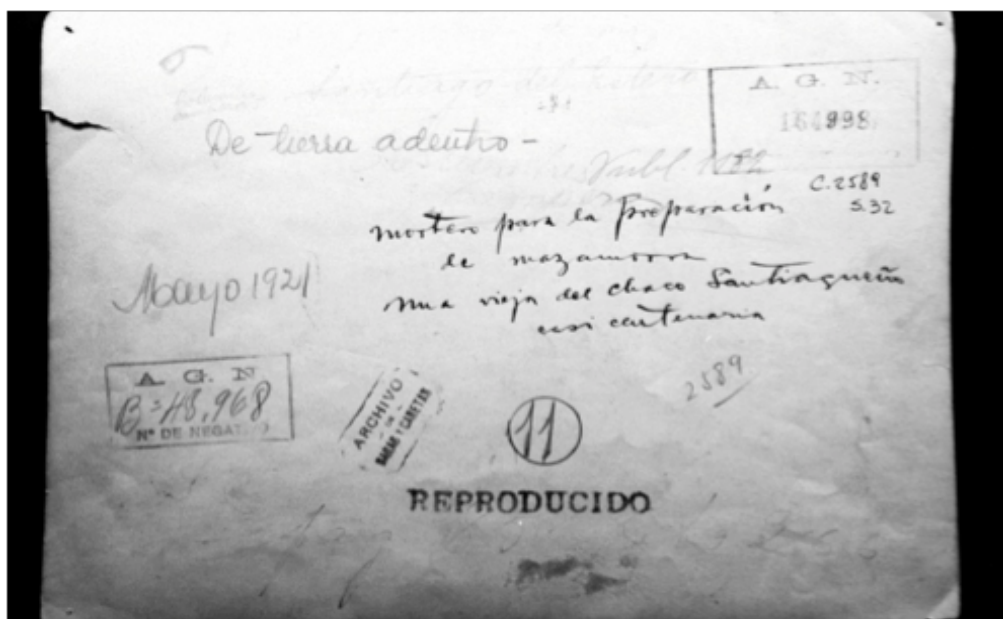 Santiago del Estero
A. G. N.
164998
De tierra adentro -
Publ 1182
C. 2589
S. 32
mortero para la preparación
de mazamorra
una vieja del chaco Santiagueño
casi centenaria
Mayo 1921
A. G. N
B=118,968
Nº DE NEGAT
ARCHIVO
DE
CARAS Y CARETAS
2589
11
REPRODUCIDO